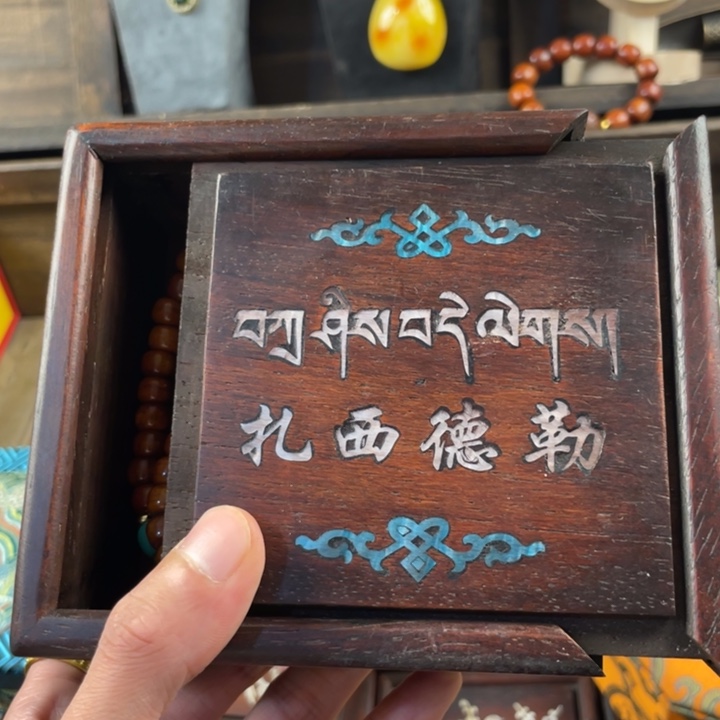 བཀྲ་ཤིས་བདེ་ལེགས
扎西德勒